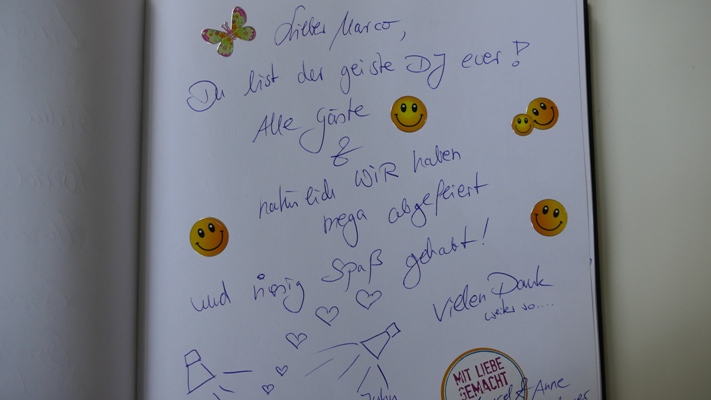 Lieber Marco,
Du bist der geiste DJ ever!
Alle Gäste
&
natürlich WIR haben
mega abgefeiert
und riesig Spaß gehabt!
Vielen Dank
weiter so....
MIT LIEBE
GEMACHT
& Anne